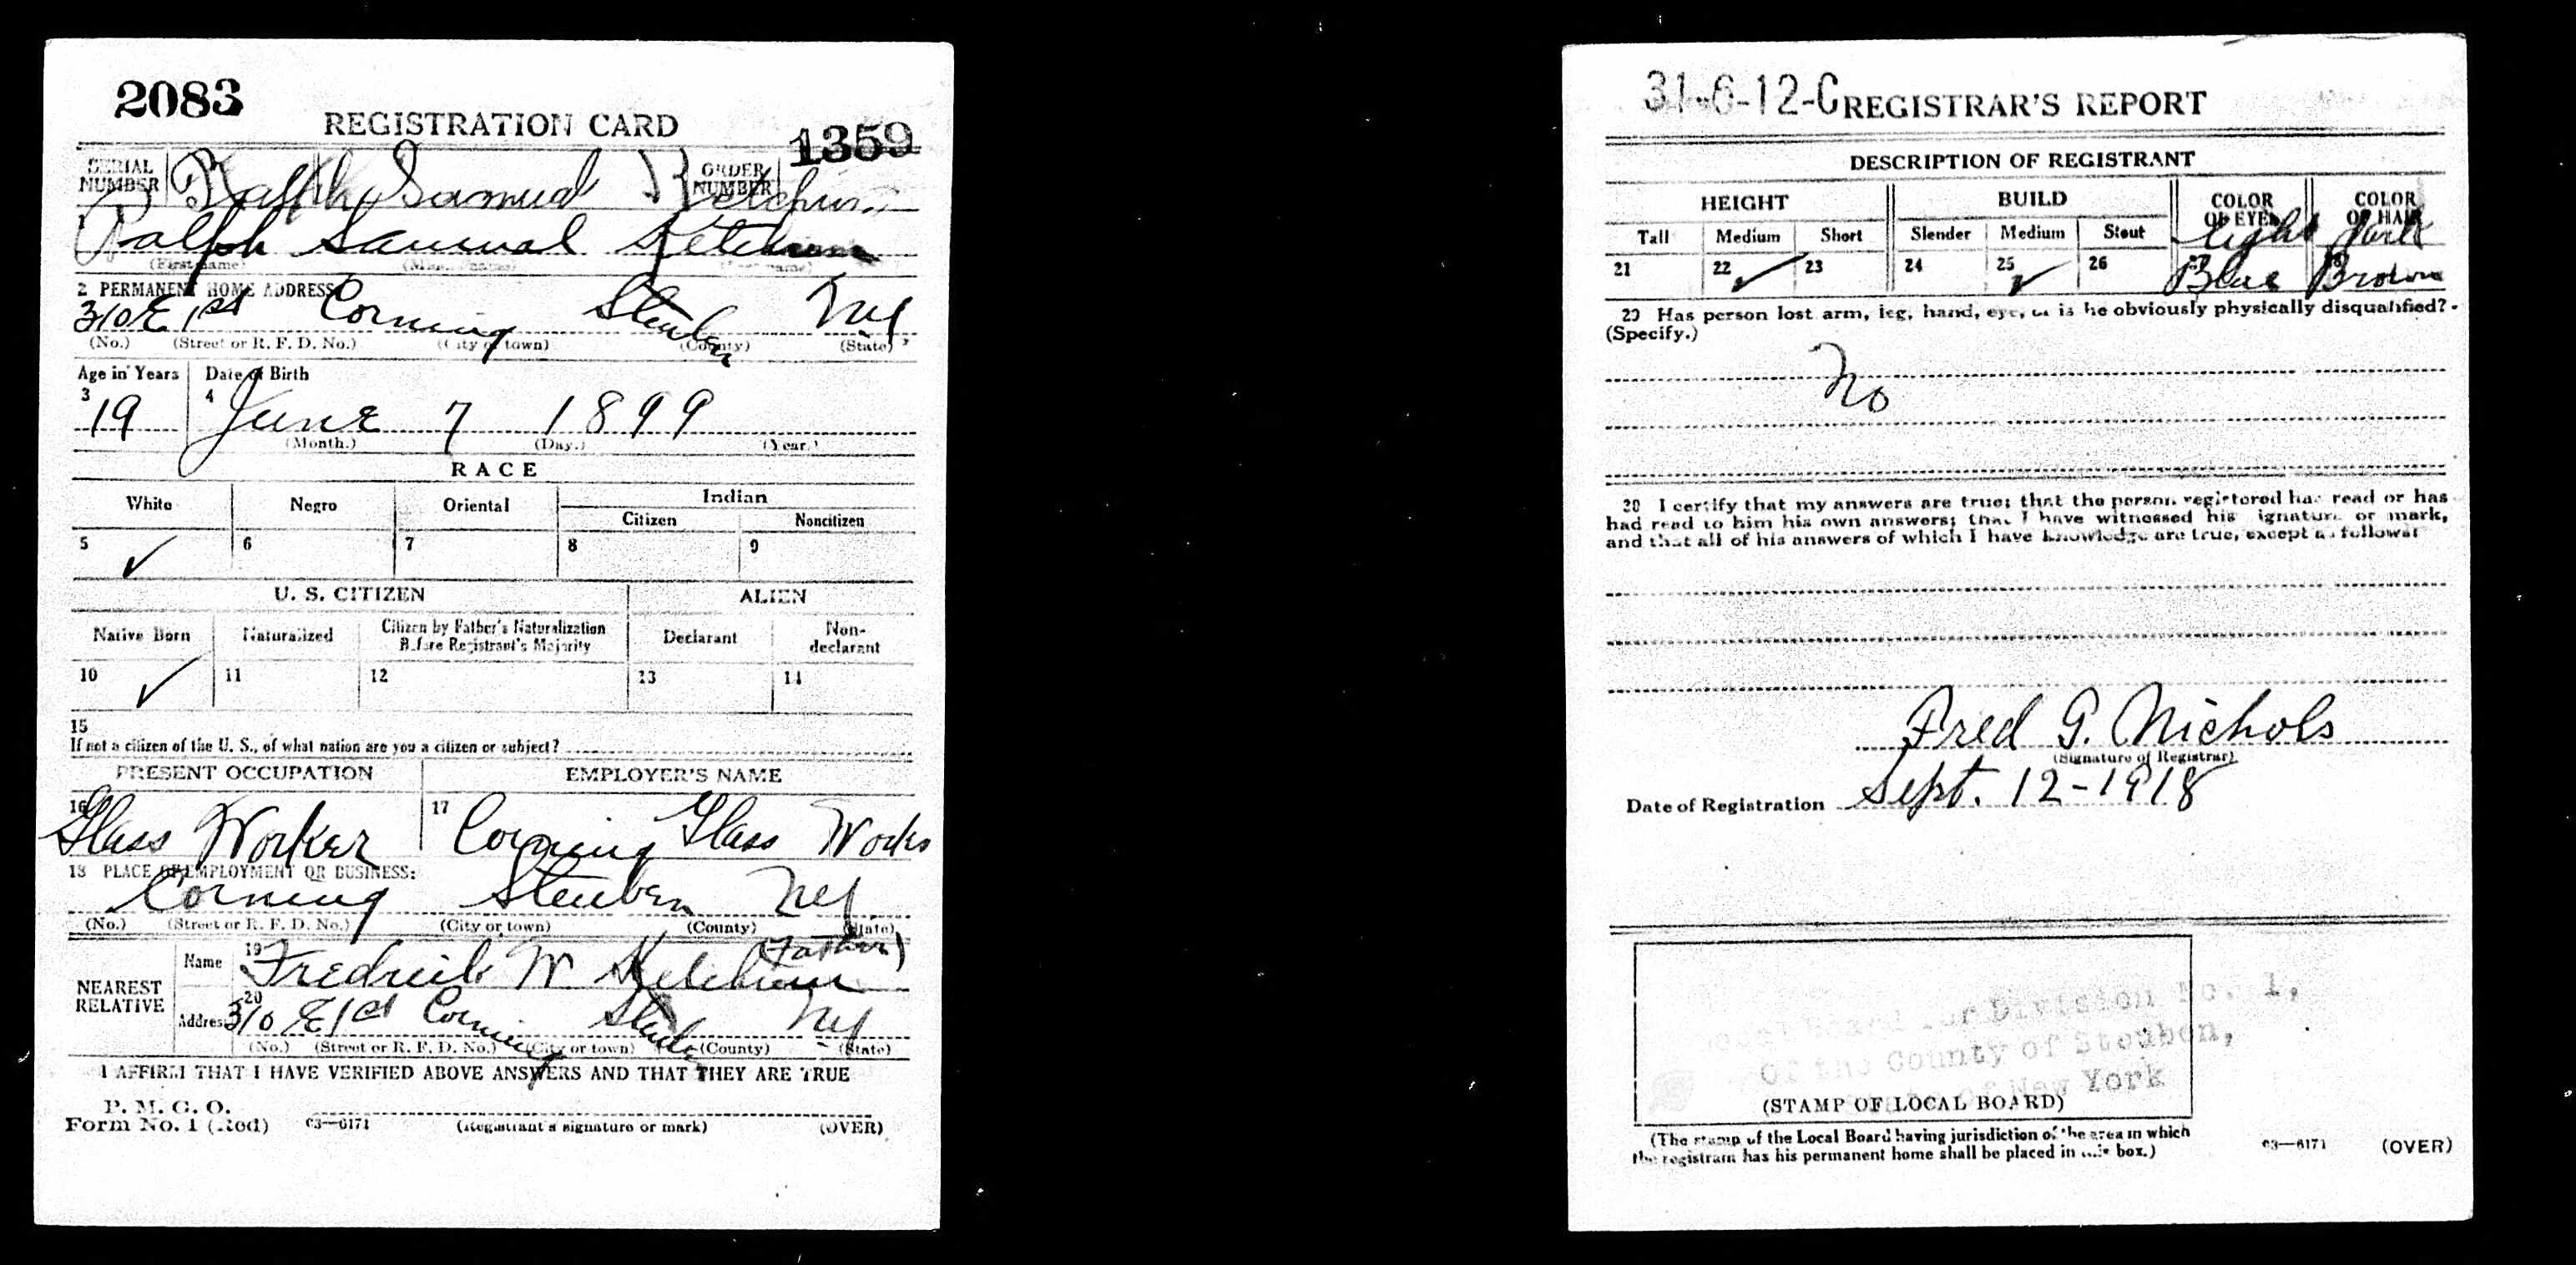 2083
REGISTRATION CARD
1359
SERIAL NUMBER
ORDER NUMBER
Ralph Samuel Ketchum
Ralph Samual Ketchum
(First name) (Middle name) (Last name)
2 PERMANENT HOME ADDRESS
310 E 1st Corning Steuben NY
(No.) (Street or R. F. D. No.) (City or town) (County) (State)
Age in Years Date of Birth
3 19 4 June 7 1899
(Month.) (Day.) (Year.)
RACE
White Negro Oriental Indian
Citizen Noncitizen
5 ✓ 6 7 8 9
U. S. CITIZEN ALIEN
Native Born Naturalized Citizen by Father's Naturalization Before Registrant's Majority Declarant Non-declarant
10 ✓ 11 12 13 14
15
If not a citizen of the U. S., of what nation are you a citizen or subject?
PRESENT OCCUPATION EMPLOYER'S NAME
16 Glass Worker 17 Corning Glass Works
18 PLACE OF EMPLOYMENT OR BUSINESS:
Corning Steuben NY
(No.) (Street or R. F. D. No.) (City or town) (County) (State)
NEAREST RELATIVE
Name 19 Fredrick W Ketchum (Father)
Address 20 310 E 1st Corning Steuben NY
(No.) (Street or R. F. D. No.) (City or town) (County) (State)
I AFFIRM THAT I HAVE VERIFIED ABOVE ANSWERS AND THAT THEY ARE TRUE
P. M. G. O.
Form No. 1 (Red) 03—6171 (Registrant's signature or mark) (OVER)
31-6-12-C REGISTRAR'S REPORT
DESCRIPTION OF REGISTRANT
HEIGHT BUILD COLOR OF EYES COLOR OF HAIR
Tall Medium Short Slender Medium Stout Light Dark
21 22 ✓ 23 24 25 ✓ 26 Blue Brown
29 Has person lost arm, leg, hand, eye, or is he obviously physically disqualified?
(Specify.)
No
30 I certify that my answers are true; that the person registered has read or has
had read to him his own answers; that I have witnessed his signature or mark,
and that all of his answers of which I have knowledge are true, except as follows:
Fred G. Nichols
(Signature of Registrar)
Date of Registration Sept. 12-1918
Local Board for Division No. 1,
Of the County of Steuben,
State of New York
(STAMP OF LOCAL BOARD)
(The stamp of the Local Board having jurisdiction of the area in which
the registrant has his permanent home shall be placed in this box.)
03—6171 (OVER)